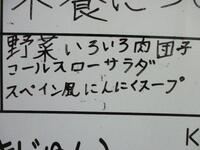 木食につ
野菜いろいろ肉団子
コールスローサラダ
スペイン風にんにくスープ
K